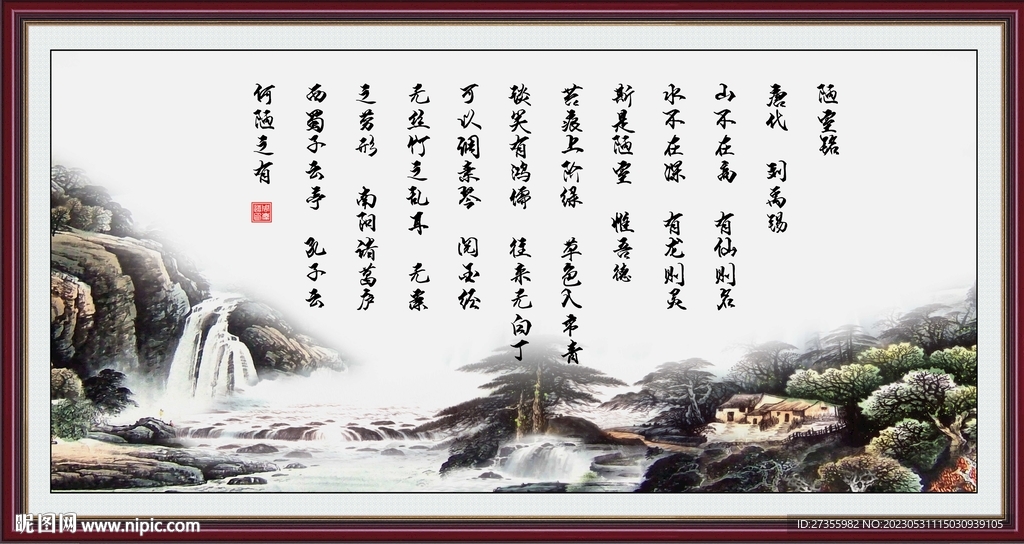 陋室铭
唐代 刘禹锡
山不在高 有仙则名
水不在深 有龙则灵
斯是陋室 惟吾德
苔痕上阶绿 草色入帘青
谈笑有鸿儒 往来无白丁
可以调素琴 阅金经
无丝竹之乱耳 无案
之劳形 南阳诸葛庐
西蜀子云亭 孔子云
何陋之有
昵图网 www.nipic.com
ID:27355982 NO:20230531115030939105